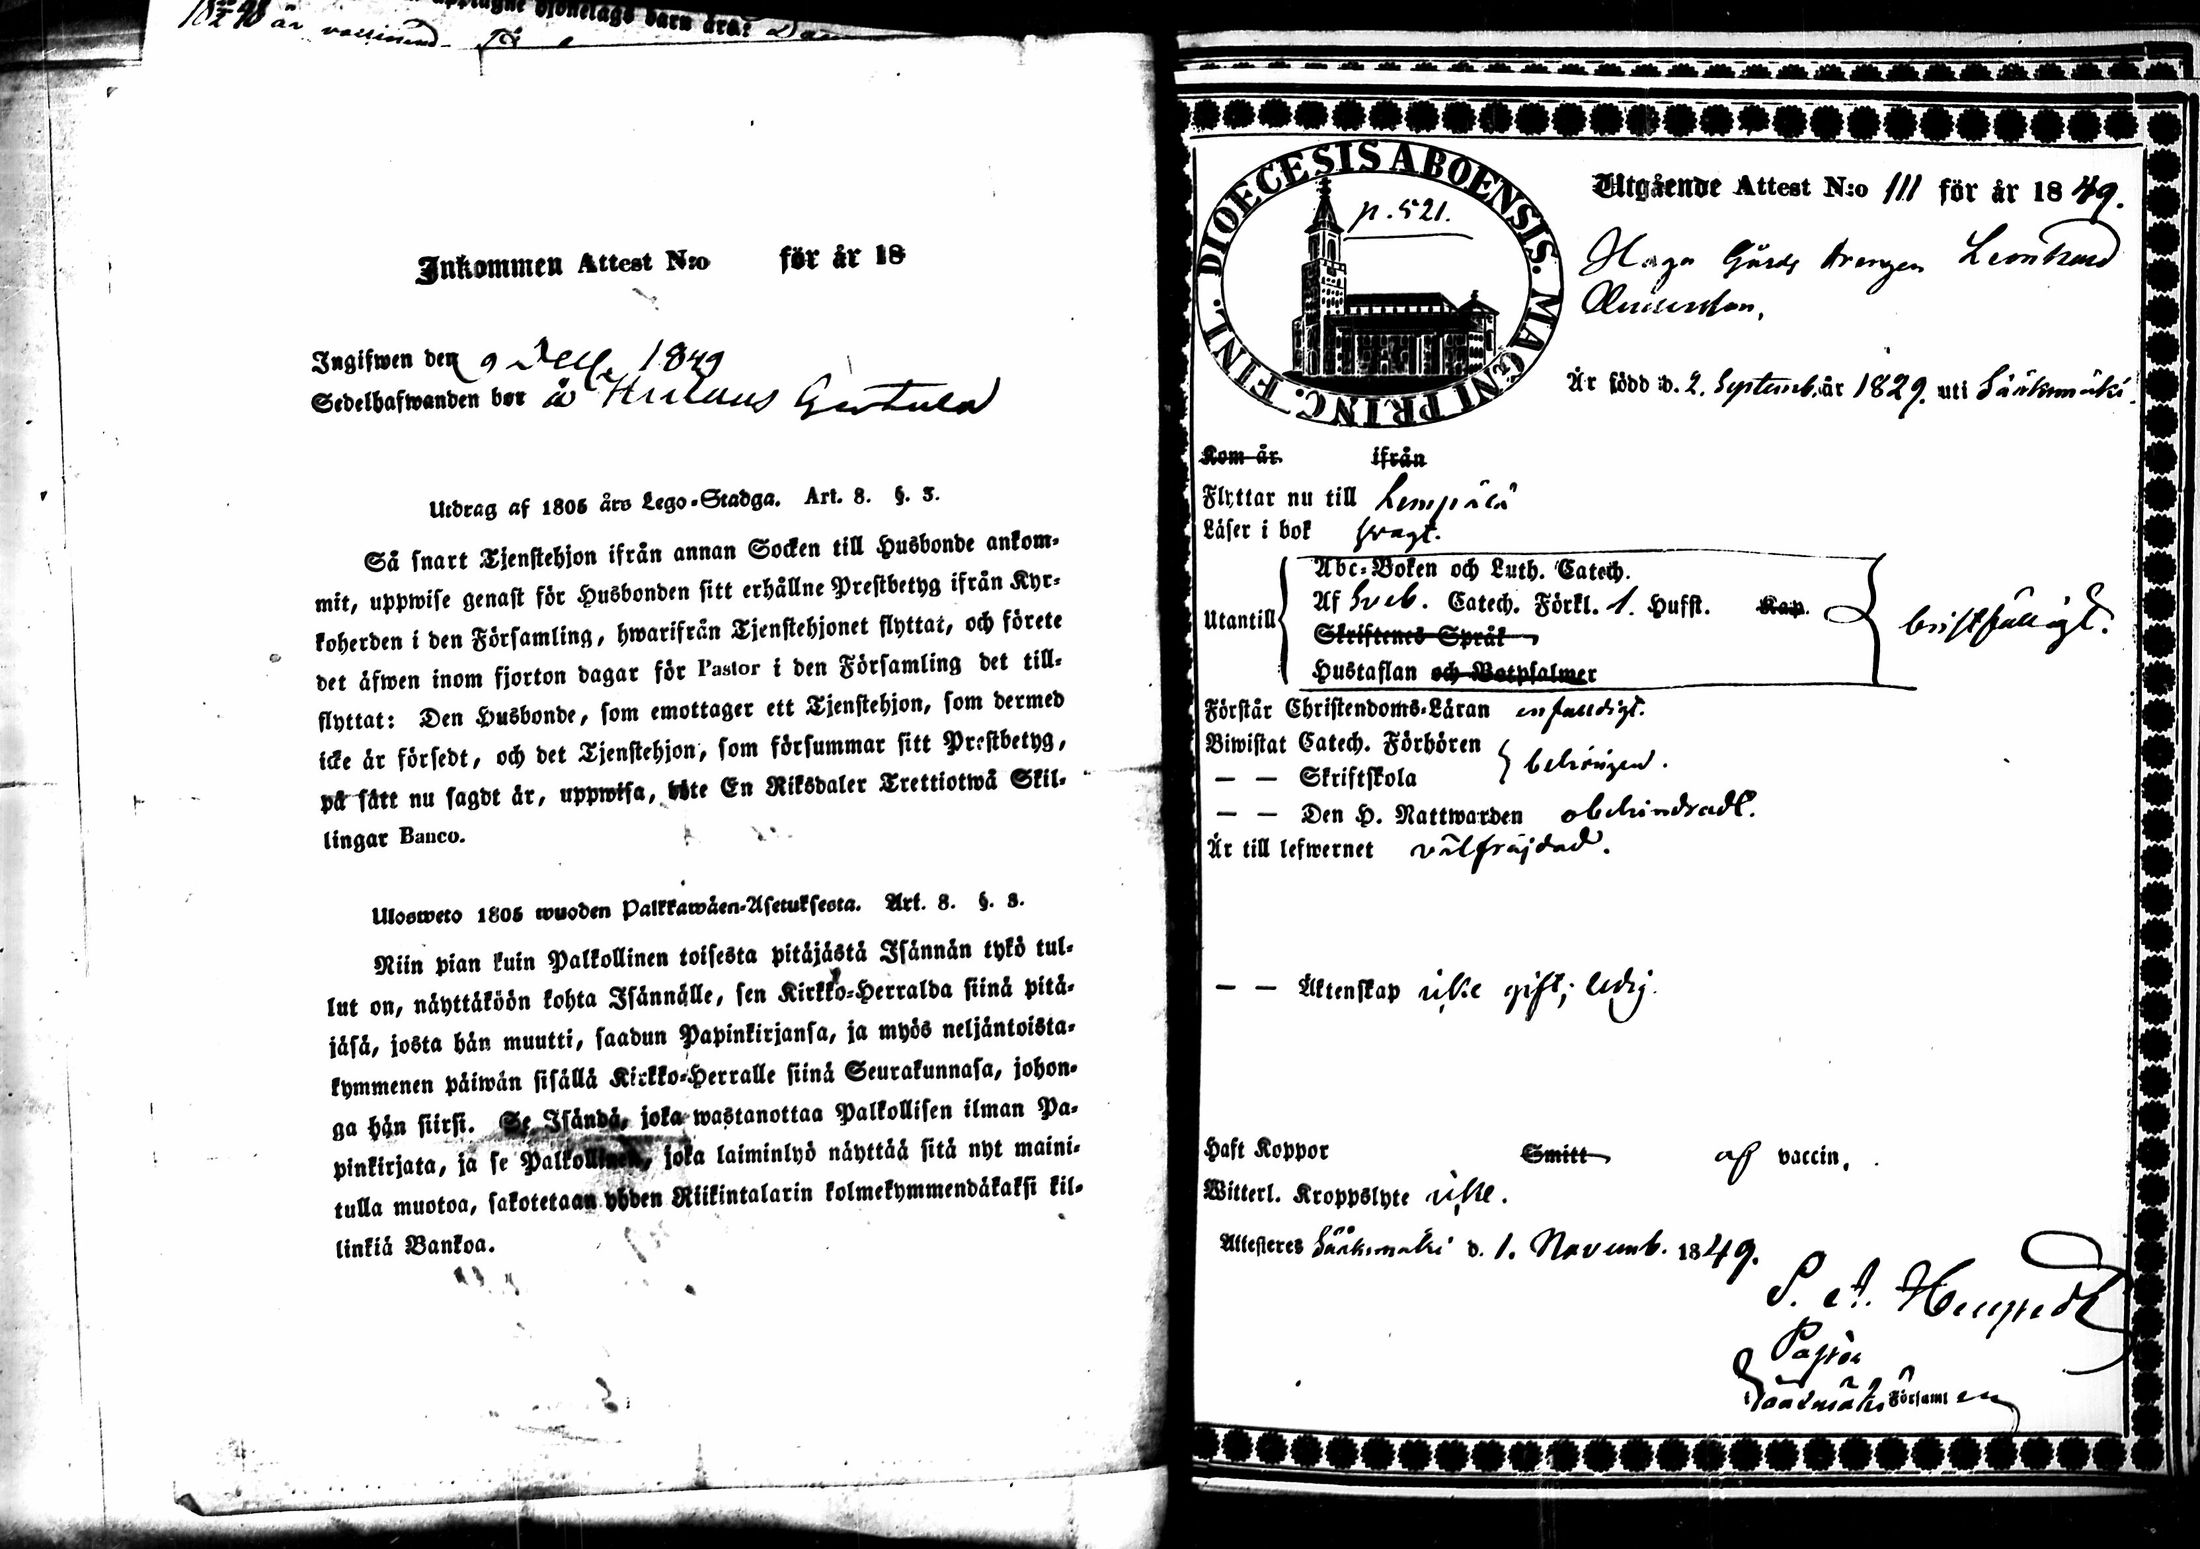 är
barn
Inkommen Attest N:o för år 18
Ingifwen den 9 Dec. 1849
Sedelhafwanden bor å
Utdrag af 1805 års Lego-Stadga. Art. 8. §. 3.
Så snart Tjenstehjon ifrån annan Socken till Husbonde ankom-
mit, uppwise genast för Husbonden sitt erhållne Prestbetyg ifrån Kyr-
koherden i den Församling, hwarifrån Tjenstehjonet flyttat, och förete
det äfwen inom fjorton dagar för Pastor i den Församling det till-
flyttat: Den Husbonde, som emottager ett Tjenstehjon, som dermed
icke är försedt, och det Tjenstehjon, som försummar sitt Prestbetyg,
på sätt nu sagdt är, uppwisa, böte En Riksdaler Trettiotwå Skil-
lingar Banco.
Ulosweto 1805 wuoden Palkkawäen-Asetuksesta. Art. 8. §. 3.
Niin pian kuin Palkollinen toisesta pitäjästä Isännän tykö tul-
lut on, näyttäköön kohta Isännälle, sen Kirkko-Herralda siinä pitä-
jäsä, josta hän muutti, saadun Papinkirjansa, ja myös neljäntoista-
kymmenen päiwän sisällä Kirkko-Herralle siinä Seurakunnasa, johon-
ga hän siirsi. Se Isändä, joka wastanottaa Palkollisen ilman Pa-
pinkirjata, ja se Palkollinen, joka laiminlyö näyttää sitä nyt maini-
tulla muotoa, sakotetaan yhden Riikintalarin kolmekymmendäkaksi kil-
linkiä Bankoa.
DIOECESIS ABOENSIS. MAGNI PRINC. FINL.
p. 521.
Utgående Attest N:o 111 för år 1849.
Haga Gårds drengen Leonhard
Andersson,
Är född d. 2. Septemb. år 1829. uti Sääksmäki.
Kom år ifrån
Flyttar nu till Lempälä
Läser i bok svagt.
Utantill
Abc-Boken och Luth. Catech.
Af Sveb. Catech. Förkl. 1. Hufst. Kap.
Skriftenes Språk
Hustaflan och Botpsalmer
bristfälligt.
Förstår Christendoms-Läran enfaldigt.
Biwistat Catech. Förhören
— — Skriftskola
behörigen.
— — Den H. Nattwarden obehindradt.
Är till lefwernet välfräjdad.
— — Äktenskap icke gift; ledig.
Haft Koppor Smitt af vaccin.
Witterl. Kroppslyte icke.
Attesteras Sääksmäki d. 1. Novemb. 1849.
Pastor
i Sääksmäki Församl en